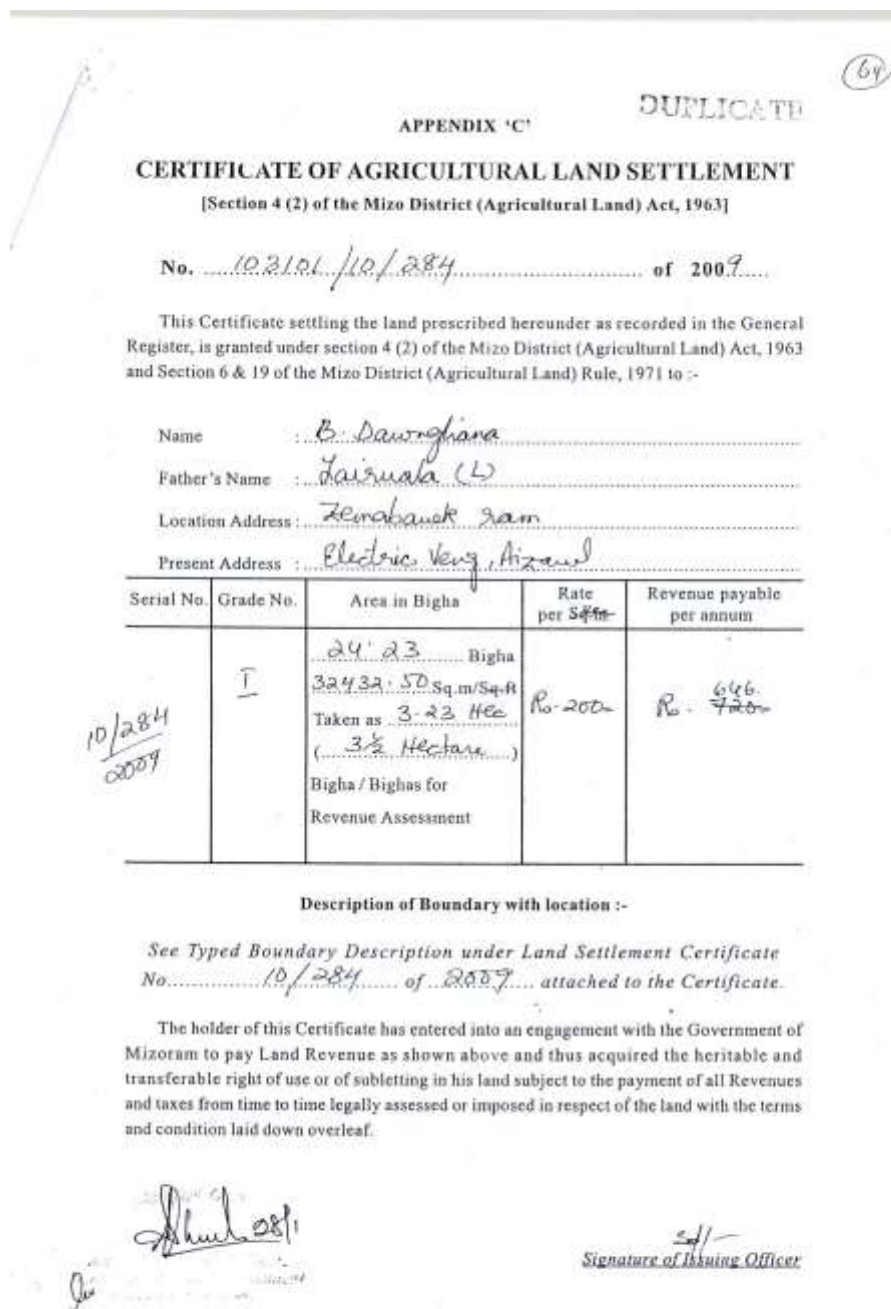 64
DUPLICATE
APPENDIX ‘C’
CERTIFICATE OF AGRICULTURAL LAND SETTLEMENT
[Section 4 (2) of the Mizo District (Agricultural Land) Act, 1963]
No. 103101/10/284 of 2009
This Certificate settling the land prescribed hereunder as recorded in the General
Register, is granted under section 4 (2) of the Mizo District (Agricultural Land) Act, 1963
and Section 6 & 19 of the Mizo District (Agricultural Land) Rule, 1971 to :-
Name : B. Dawnghiana
Father's Name : Lairuala (L)
Location Address : Zemabawk ram
Present Address : Electric Veng, Aizawl
Serial No. Grade No. Area in Bigha Rate per Revenue payable per annum
10/284
2009
I
24.23 Bigha
32432.50 Sq.m/Sq.ft
Taken as 3.23 Hec
( 3½ Hectare )
Bigha / Bighas for
Revenue Assessment
Rs. 200
Rs. 646
720
Description of Boundary with location :-
See Typed Boundary Description under Land Settlement Certificate
No. 10/284 of 2009 attached to the Certificate.
The holder of this Certificate has entered into an engagement with the Government of
Mizoram to pay Land Revenue as shown above and thus acquired the heritable and
transferable right of use or of subletting in his land subject to the payment of all Revenues
and taxes from time to time legally assessed or imposed in respect of the land with the terms
and condition laid down overleaf.
28/1
Sd/-
Signature of Issuing Officer